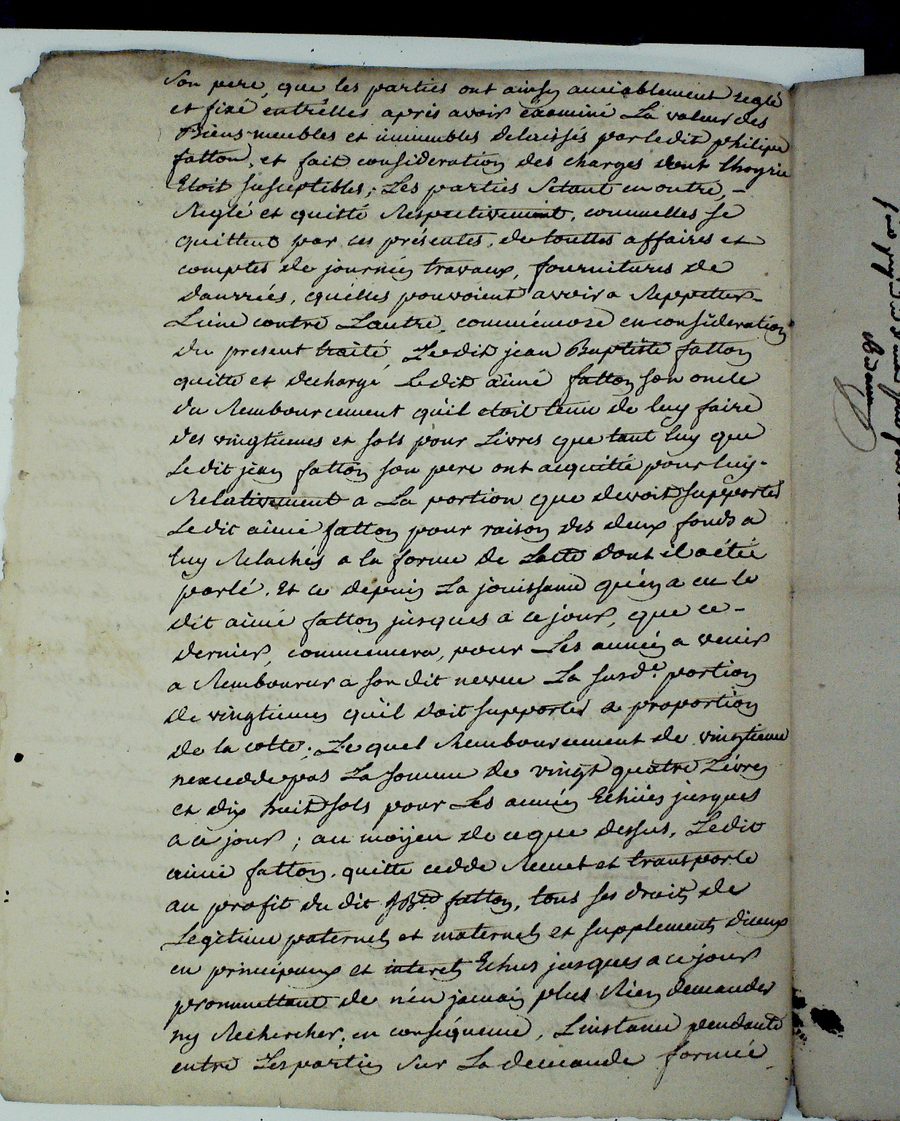 son pere, que les parties ont ainsy amiablement reglé
et fixé entr'elles apres avoir examiné La valeur des
Biens meubles et immeubles delaissés par ledit philipe
fatton, et fait consideration des charges dont l'hoyrie
Etoit susceptibles; Les parties s'etant en outre, -
Reglé et quitté Respectivement, comme elles se
quittent par ces présentes, de touttes affaires et
comptes de journées travaux, fournitures de
danrrées, qu'elles pouvoient avoir a Reppetter -
L'une contre L'autre, comm'encore en consideration
du present traité, Ledit jean Baptiste fatton
quitte et decharge Ledit aimé fatton son oncle
du Rembourcement qu'il etoit tenu de luy faire
des vingtiemes et sols pour Livres que tant luy que
Ledit jean fatton son pere ont acquitté pour luy -
Relativement a La portion que devoit supporter
Ledit aimé fatton pour raison des deux fonds a
luy Relachés a la forme de Latte dont il a été
parlé. Et ce depuis La jouissance qu'en a eu le
dit aimé fatton jusques a ce jour, que ce -
dernier, commencera, pour Les années a venir
a Rembourcer a son dit neveu La susd.e portion
de vingtiemes qu'il doit supporter a proportion
de la cotte; Le quel Rembourcement de vingtieme
n'excedde pas La somme de vingt quatre Livres
et dix huit sols pour Les années Echües jusques
a ce jour; au moÿen de ce que dessus, Ledit
aimé fatton, quitte cedde Remet et transporte
au profit du dit JBte fatton, tous ses droits de
Legitime paternels et maternels et supplement d'iceux
en principaux et interets Echus jusques a ce jour
prommettant de n'en jamais plus Rien demander
ny Rechercher; en conséquence, L'instance pendante
entre Les parties sur La demande formée